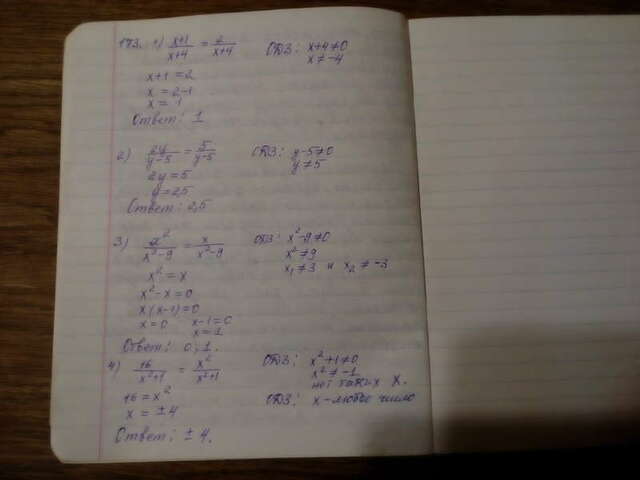 173. 1) x+1/x+4 = 2/x+4 ОДЗ: x+4≠0
x≠-4
x+1=2
x=2-1
x=1
Ответ: 1
2) 2y/y-5 = 5/y-5 ОДЗ: y-5≠0
y≠5
2y=5
y=2,5
Ответ: 2,5
3) x²/x²-9 = x/x²-9 ОДЗ: x²-9≠0
x²≠9
x₁≠3 и x₂≠-3
x²=x
x²-x=0
x(x-1)=0
x=0 x-1=0
x=1
Ответ: 0; 1.
4) 16/x²+1 = x²/x²+1 ОДЗ: x²+1≠0
x²≠-1
нет таких x.
16=x² ОДЗ: x-любое число
x=±4
Ответ: ±4.